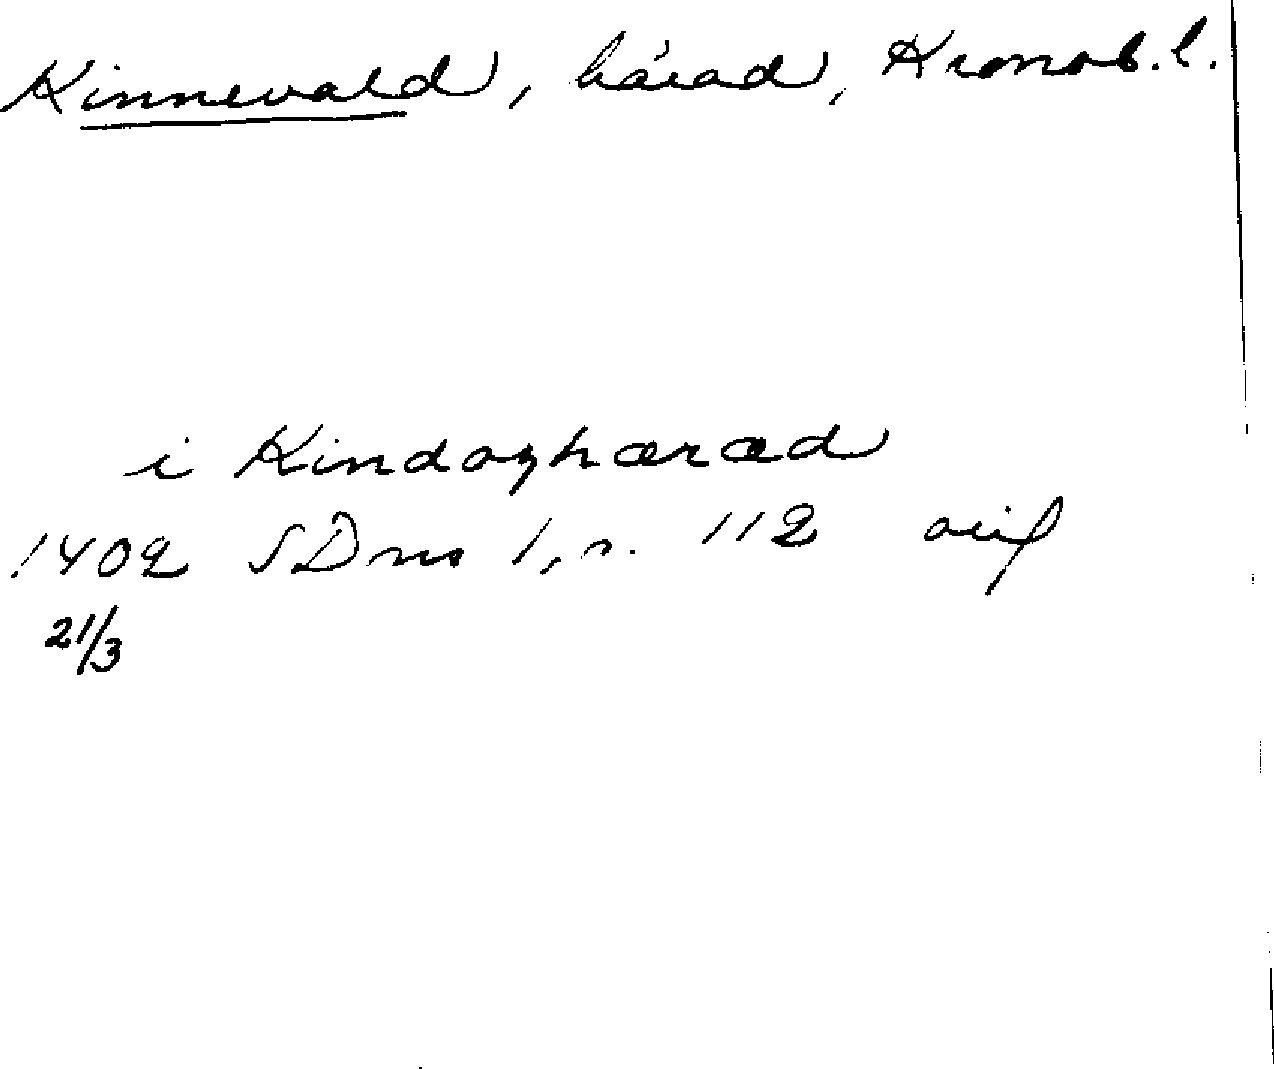 Kinnevald, härad, Kronob. l.
i Kindaghæræd
1402 SDns 1, s. 112 avs
21/3